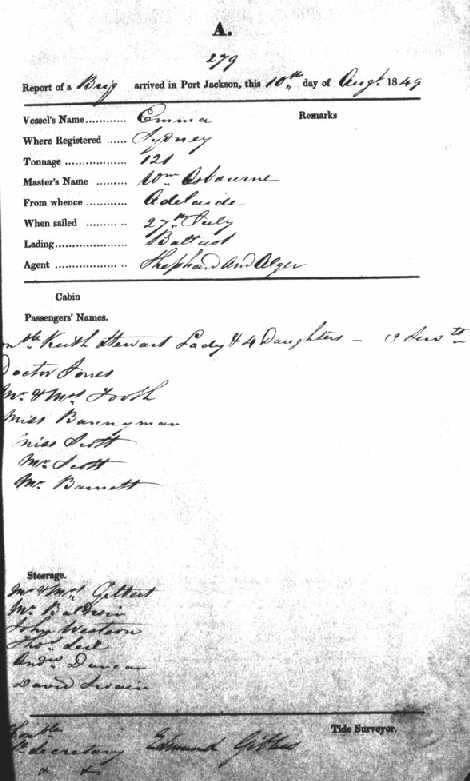 A.
279
Report of a Brig arrived in Port Jackson, this 10th day of Augt. 1849
Vessel's Name Emma Remarks
Where Registered Sydney
Tonnage 121
Master's Name Wm Osbourne
From whence Adelaide
When sailed 27th July
Lading Ballast
Agent Shephard and Alger
Cabin
Passengers' Names.
Keith Stewart Lady & 4 Daughters —
Doctor Jones
Mr. & Mrs Tooth
Miss Bannyman
Miss Scott
Mr. Scott
Mr. Barnett
Steerage.
Mr & Mrs Gilbert
Mr. Baldwin
John Weetson
Thos.
Andw. Duncan
David
Tide Surveyor.
Secretary Edmund